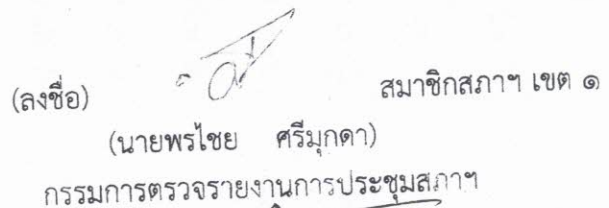 (ลงชื่อ) สมาชิกสภาฯ เขต ๑
(นายพรไชย ศรีมุกดา)
กรรมการตรวจรายงานการประชุมสภาฯ